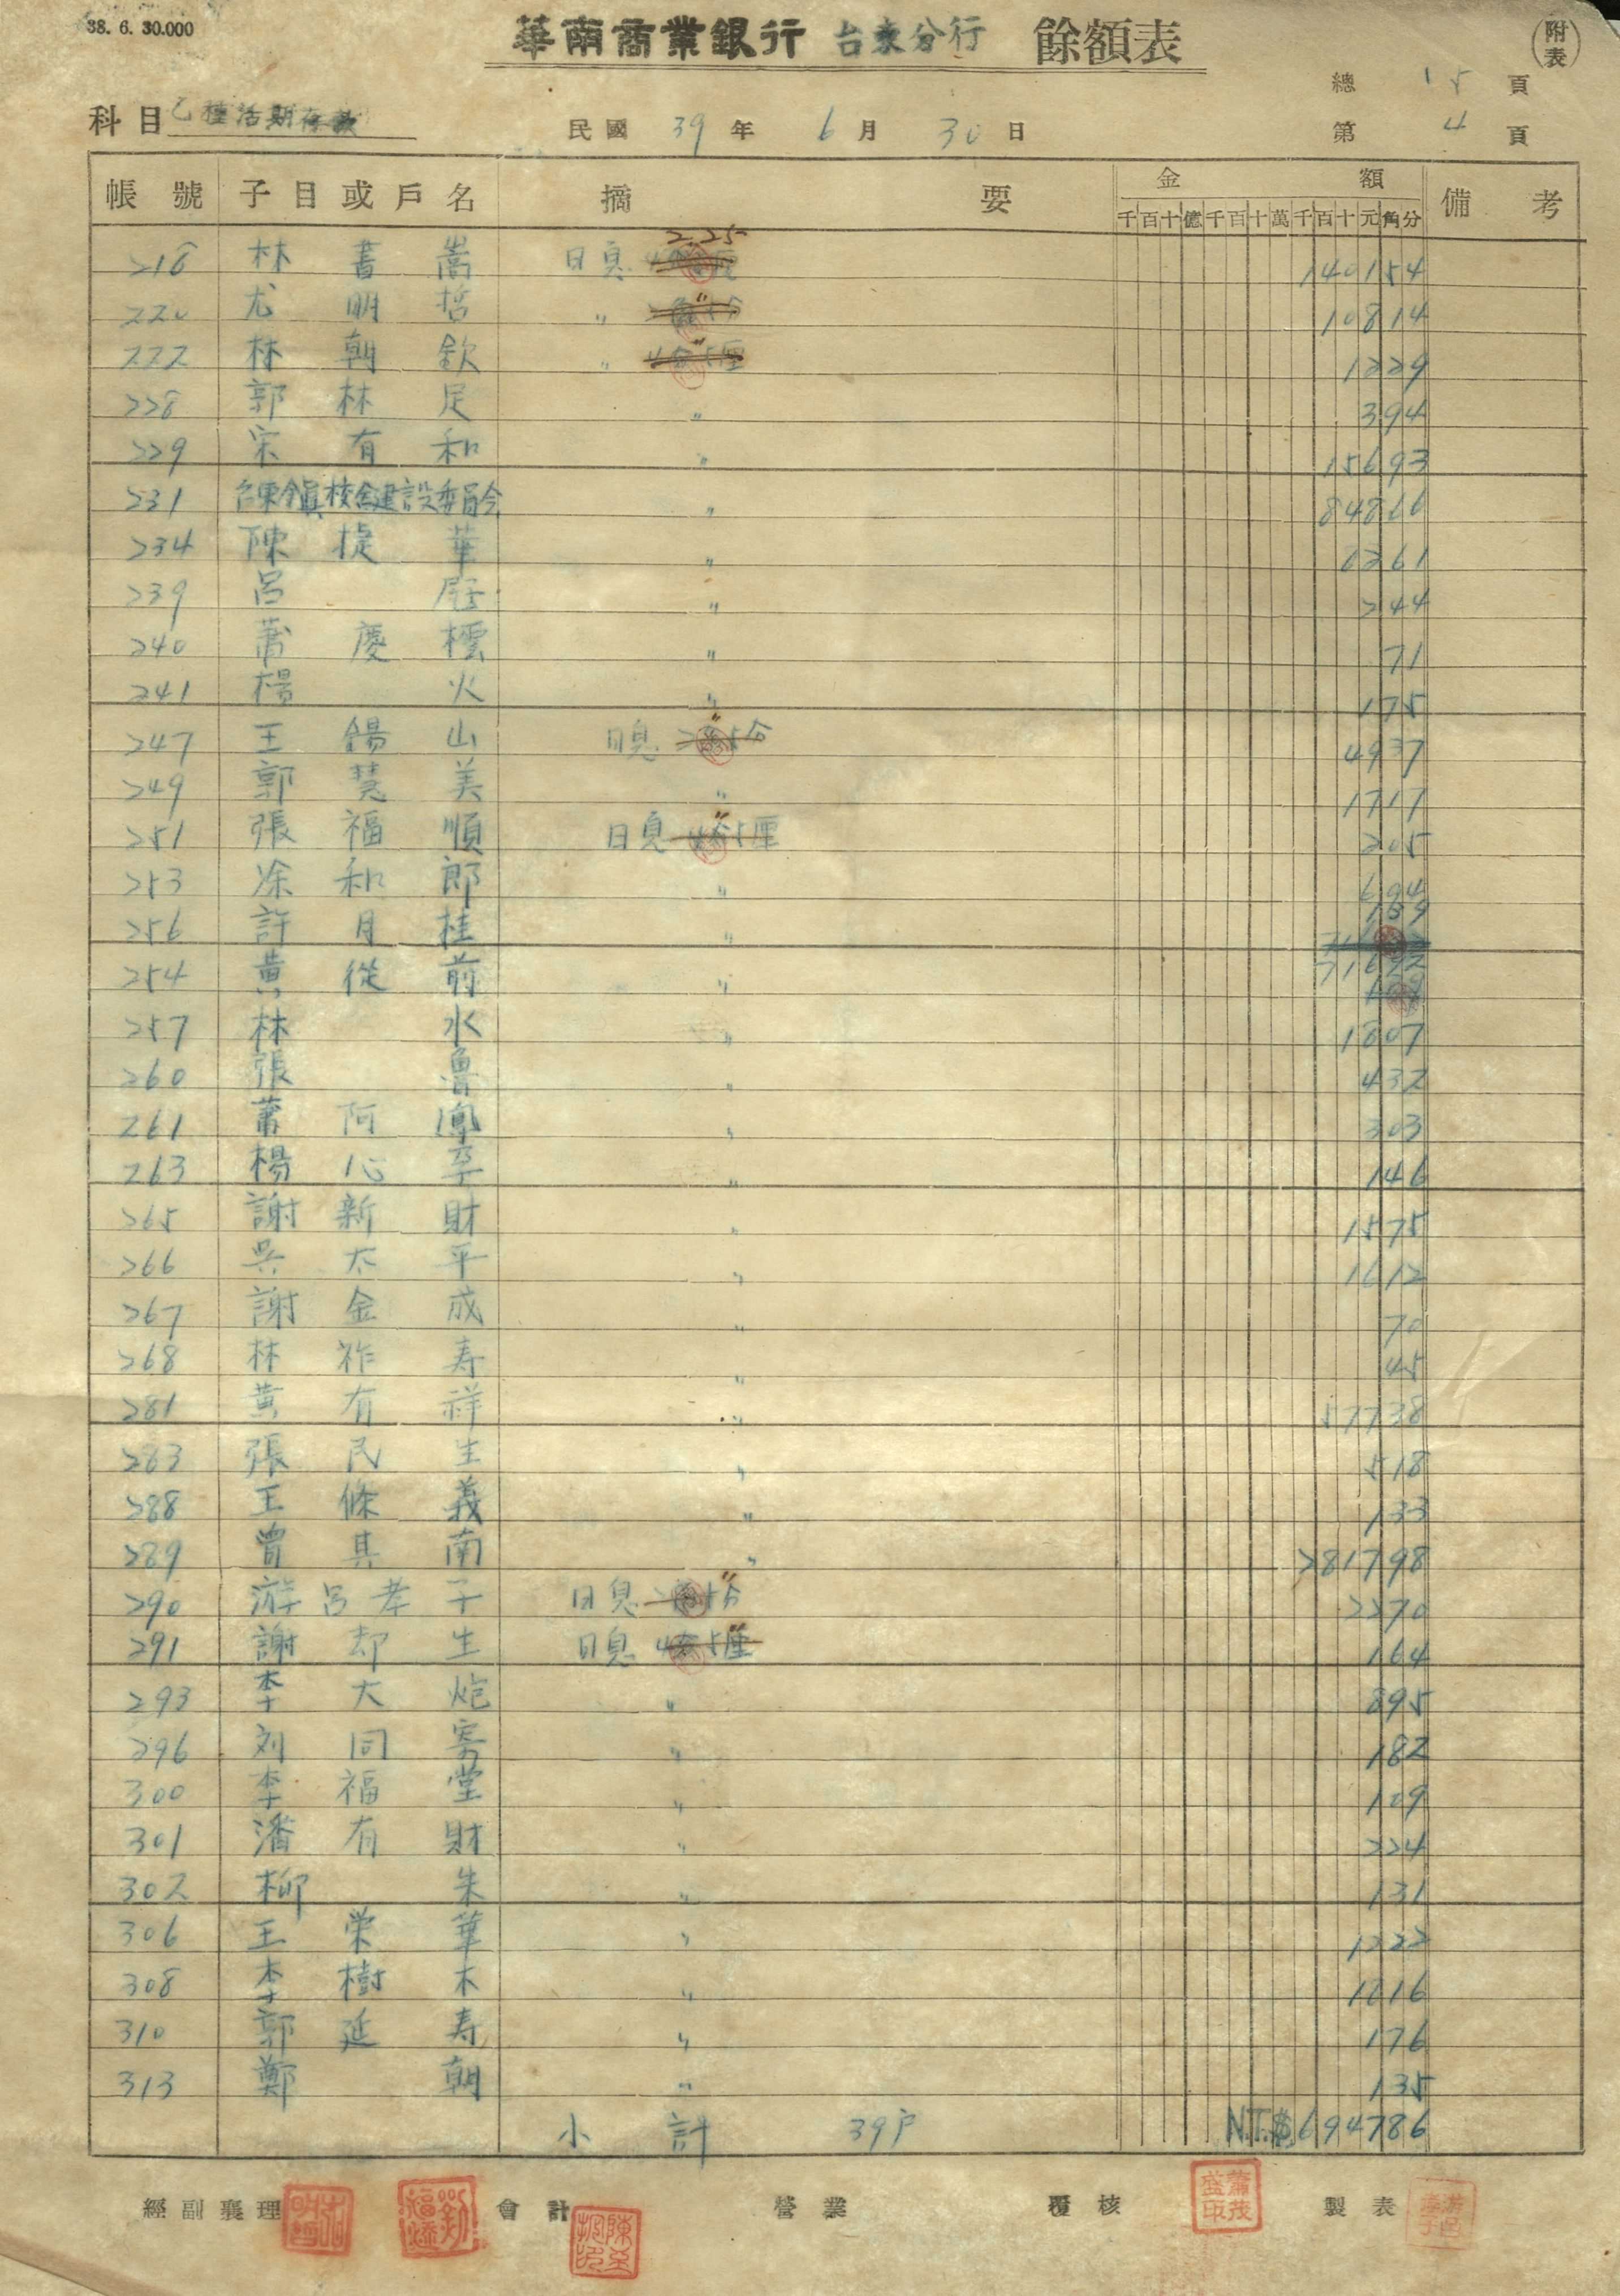 38. 6. 30.000
華南商業銀行 台東分行 餘額表 (附表)
總 15 頁
科目 乙種活期存款 民國 39 年 6 月 30 日 第 4 頁
帳號 子目或戶名 摘要 金額 備考
千百十億千百十萬千百十元角分
2.25
216 林書嵩 日息 140154
220 尤明哲 〃 〃 10814
222 林朝欽 〃 4分5厘 〃 1229
228 郭林足 〃 394
229 宋有和 〃 15693
231 校舍建設委員会 〃 84816
234 陳捷華 〃 1261
239 呂 〃 244
240 蕭慶樰 〃 71
241 楊火 〃 175
247 王錫山 日息 〃 4937
249 郭慧美 〃 1711
251 張福順 日息 4分5厘 〃 205
253 涂和郎 〃 694
256 許月桂 〃 189
254 黃從前 〃 71622
257 林水 〃 1807
260 張魯 〃 432
261 蕭阿鳳 〃 303
263 楊心 〃 146
265 謝新財 〃 1575
266 吳太平 〃 1612
267 謝金成 〃 70
268 林祚寿 〃 45
281 黃有祥 〃 57738
283 張民生 〃 518
288 王條義 〃 133
289 曾其南 〃 281798
290 游呂孝子 日息 〃 2270
291 謝却生 日息 4分5厘 〃 164
293 李大炮 〃 895
296 刘同 〃 182
300 李福堂 〃 109
301 潘有財 〃 224
302 柳朱 〃 131
306 王栄華 〃 1222
308 李樹木 〃 1216
310 郭延寿 〃 176
313 鄭朝 〃 135
小計 39戶 N.T.$694786
經副襄理 會計 營業 覆核 蕭茂盛印 製表 游呂孝子